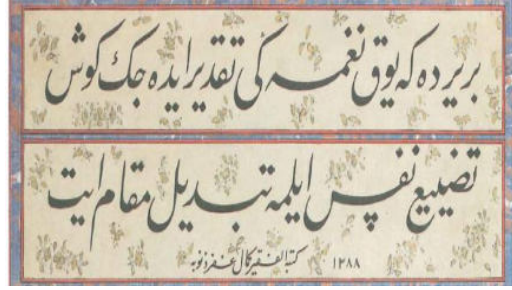 بر یرده که یوق نغمه کی تقدیر ایده جک کوش
تضییع نفس ایلمه تبدیل مقام ایت
کتبه الفقیر کمال غفر ذنوبه ۱۲۸۸